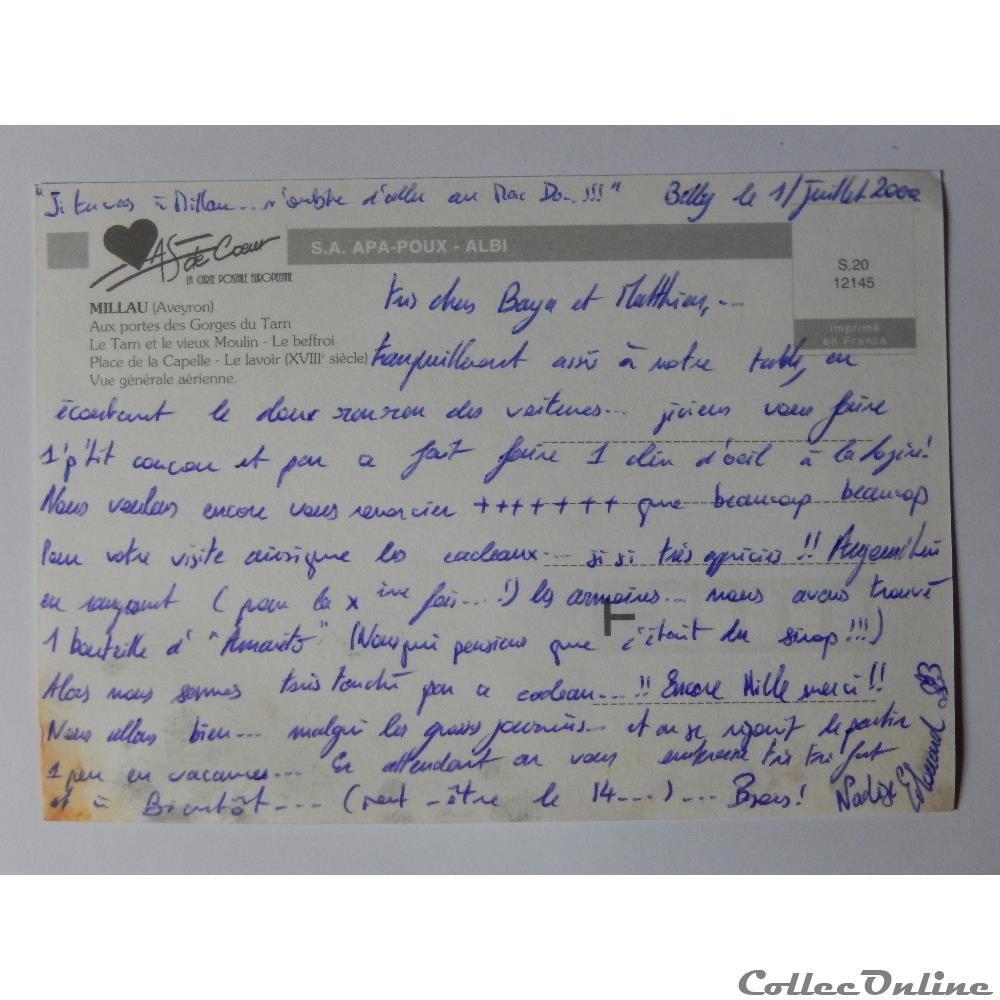 "Si tu vas à Millau... n'oublie d'aller au Mac Do...!!!" Billy le 1/Juillet 2000
AS de Coeur
LA CARTE POSTALE EUROPEENNE
S.A. APA-POUX - ALBI
S.20
12145
Imprimé
en France
MILLAU (Aveyron)
Aux portes des Gorges du Tarn
Le Tarn et le vieux Moulin - Le beffroi
Place de la Capelle - Le lavoir (XVIIIe siècle)
Vue générale aérienne.
très chers Baya et Matthieu,...
tranquillement assis à notre table, en
écoutant le doux ronron des voitures... je viens vous faire
1 p'tit coucou et par ce fait faire 1 clin d'oeil à la
Nous voulons encore vous remercier +++++++ que beaucoup beaucoup
Pour votre visite ainsi que les cadeaux.... si si très appréciés !! Aujourd'hui
en rangeant (pour la x ième fois...!) les armoires... nous avons trouvé
1 bouteille d'"Amaretto" (Nous qui pensions que c'était du sirop!!!)
Alors nous sommes très touché par ce cadeau....!! Encore Mille merci!!
Nous allons bien... malgré les grosses journées... et on se réjouit de partir
1 peu en vacances... En attendant on vous embrasse très très fort
et à Bientôt.... (peut-être le 14....)... Bises! Nadège
Edouard
CollecOnline